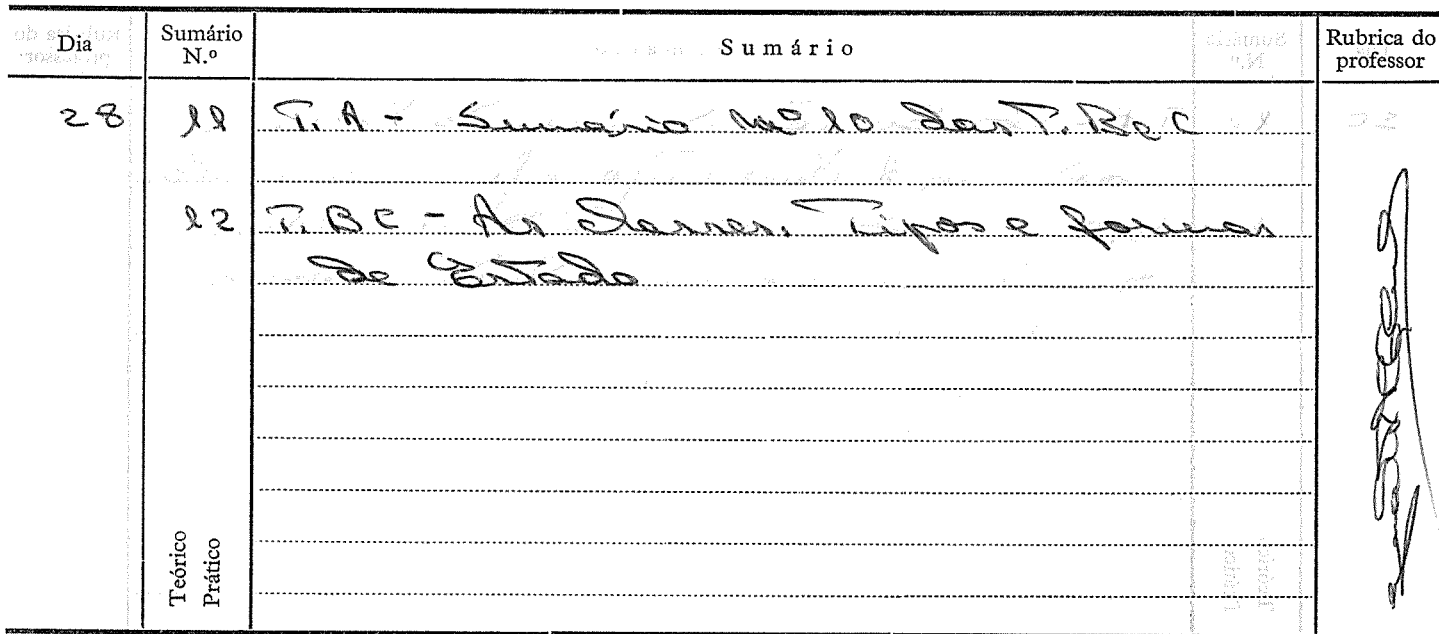 Dia
Sumário N.º
Sumário
Rubrica do professor
28 11 T. A - Sumário nº 10 das T. B e C
12 T. B C - As classes. Tipos e formas
de Estado
Teórico
Prático